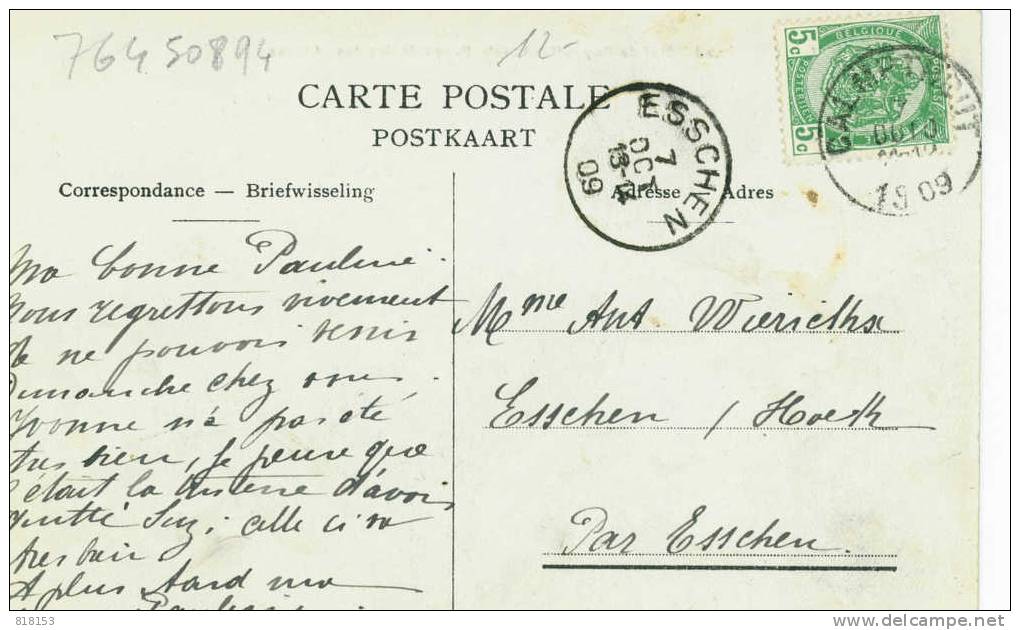 76450894
12-
CARTE POSTALE
POSTKAART
Correspondance — Briefwisseling
Adresse — Adres
BELGIQUE
5c
5c
ESSCHEN
7
OCT
13-14
09
1909
Ma bonne Pauline.
Nous regrettons vivement
de ne pouvoir venir
Dimanche chez vous.
Yvonne n'a pas été
très bien, je pense que
c'était la tristesse d'avoir
quitté Suz; celle ci va
très bien
A plus tard ma
Mme Ant Wierickx
Esschen / Hoek
Par Esschen.
818153
www.delcampe.net